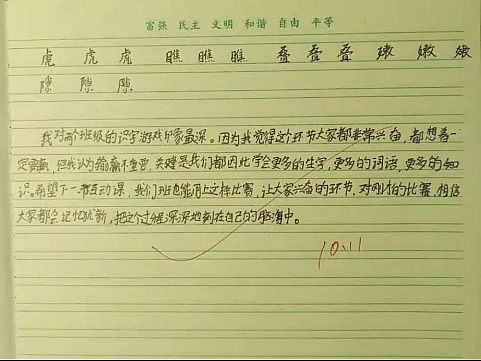 富强 民主 文明 和谐 自由 平等
虎 虎 虎 瞧 瞧 瞧 叠 叠 叠 嫩 嫩 嫩
隙 隙 隙
我对两个班级的识字游戏印象最深。因为我觉得这个环节大家都非常兴奋,都想着一
定要赢,但我认为输赢不重要,关键是我们都因此学会更多的生字,更多的词语,更多的知
识。希望下一次互动课,我们班也能用上这样比赛,让大家兴奋的环节,对刚才的比赛,相信
大家都会记忆犹新,把这个过程深深地刻在自己的脑海中。
10.11